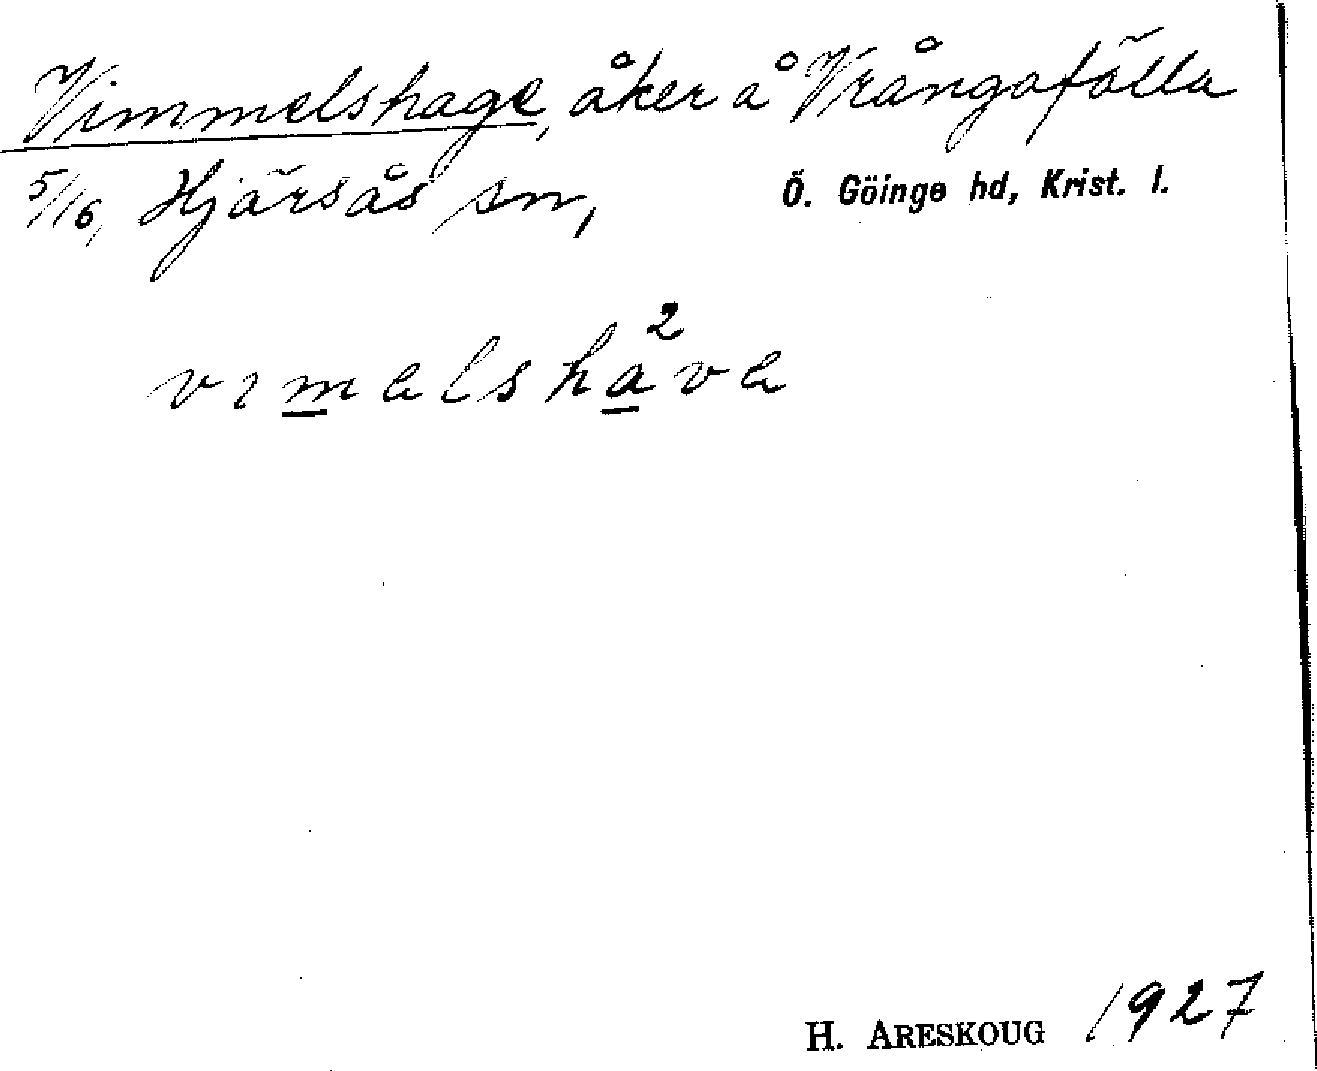 Vimmelshage, åker å Vrångafälla
5/16, Hjärsås sn, Ö. Göinge hd, Krist. l.
H. ARESKOUG 1927